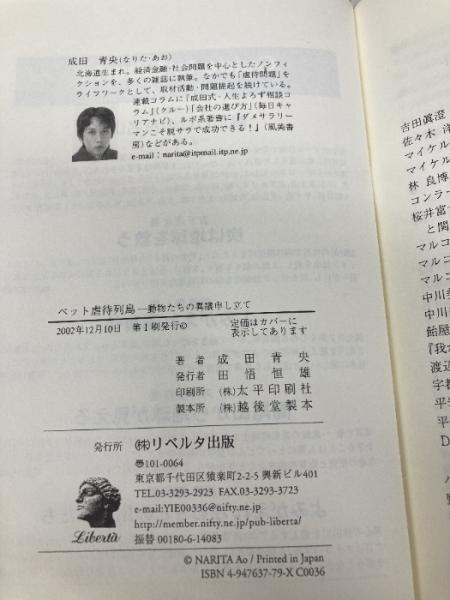 成田 青央(なりた・あお)
北海道生まれ。経済金融・社会問題を中心としたノンフィ
クションを、多くの雑誌に執筆。なかでも「虐待問題」を
ライフワークとして、取材活動・問題提起を続けている。
連載コラムに「成田式・人生よろず相談コ
ラム」(クルー)「会社の選び方」(毎日キャ
リアナビ)、ルポ系著書に『ダメサラリー
マンこそ脱サラで成功できる!』(風美書
房)などがある。
e-mail:narita@itpmail.itp.ne.jp
ペット虐待列島―動物たちの異議申し立て
2002年12月10日 第1刷発行©
定価はカバーに
表示してあります
著者 成田青央
発行者 田悟恒雄
印刷所 (株)太平印刷社
製本所 (株)越後堂製本
発行所 ㈱リベルタ出版
〠101-0064
東京都千代田区猿楽町2-2-5 興新ビル401
TEL.03-3293-2923 FAX.03-3293-3723
e-mail:YIE00336@nifty.ne.jp
http://member.nifty.ne.jp/pub-liberta/
振替 00180-6-14083
Libertà
© NARITA Ao / Printed in Japan
ISBN 4-947637-79-X C0036
吉田眞澄
佐々木
マイケル
マイケル
林 良博
コンラー
桜井富士
と関
マルコ
マルコ
マルコ
中川志
中川
飴屋
『我が
渡辺
宇都
平
平
D